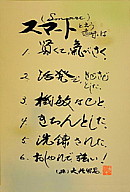 (Smart)
スマートという言葉は
1. 賢くて、気がきく。
2. 活発で、きびきびした。
3. 機敏なこと
4. きちんとした。
5. 洗練された。
6. おしゃれで、強い!
(株)